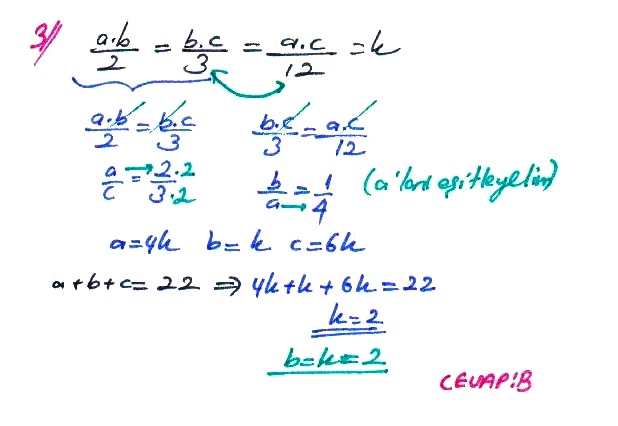 3// a.b/2 = b.c/3 = a.c/12 = k
a.b/2 = b.c/3 b.c/3 = a.c/12
a/c = 2.2/3.2 b/a = 1/4 (a'ları eşitleyelim)
a=4k b=k c=6k
a+b+c=22 ⇒ 4k+k+6k=22
k=2
b=k=2
CEVAP:B